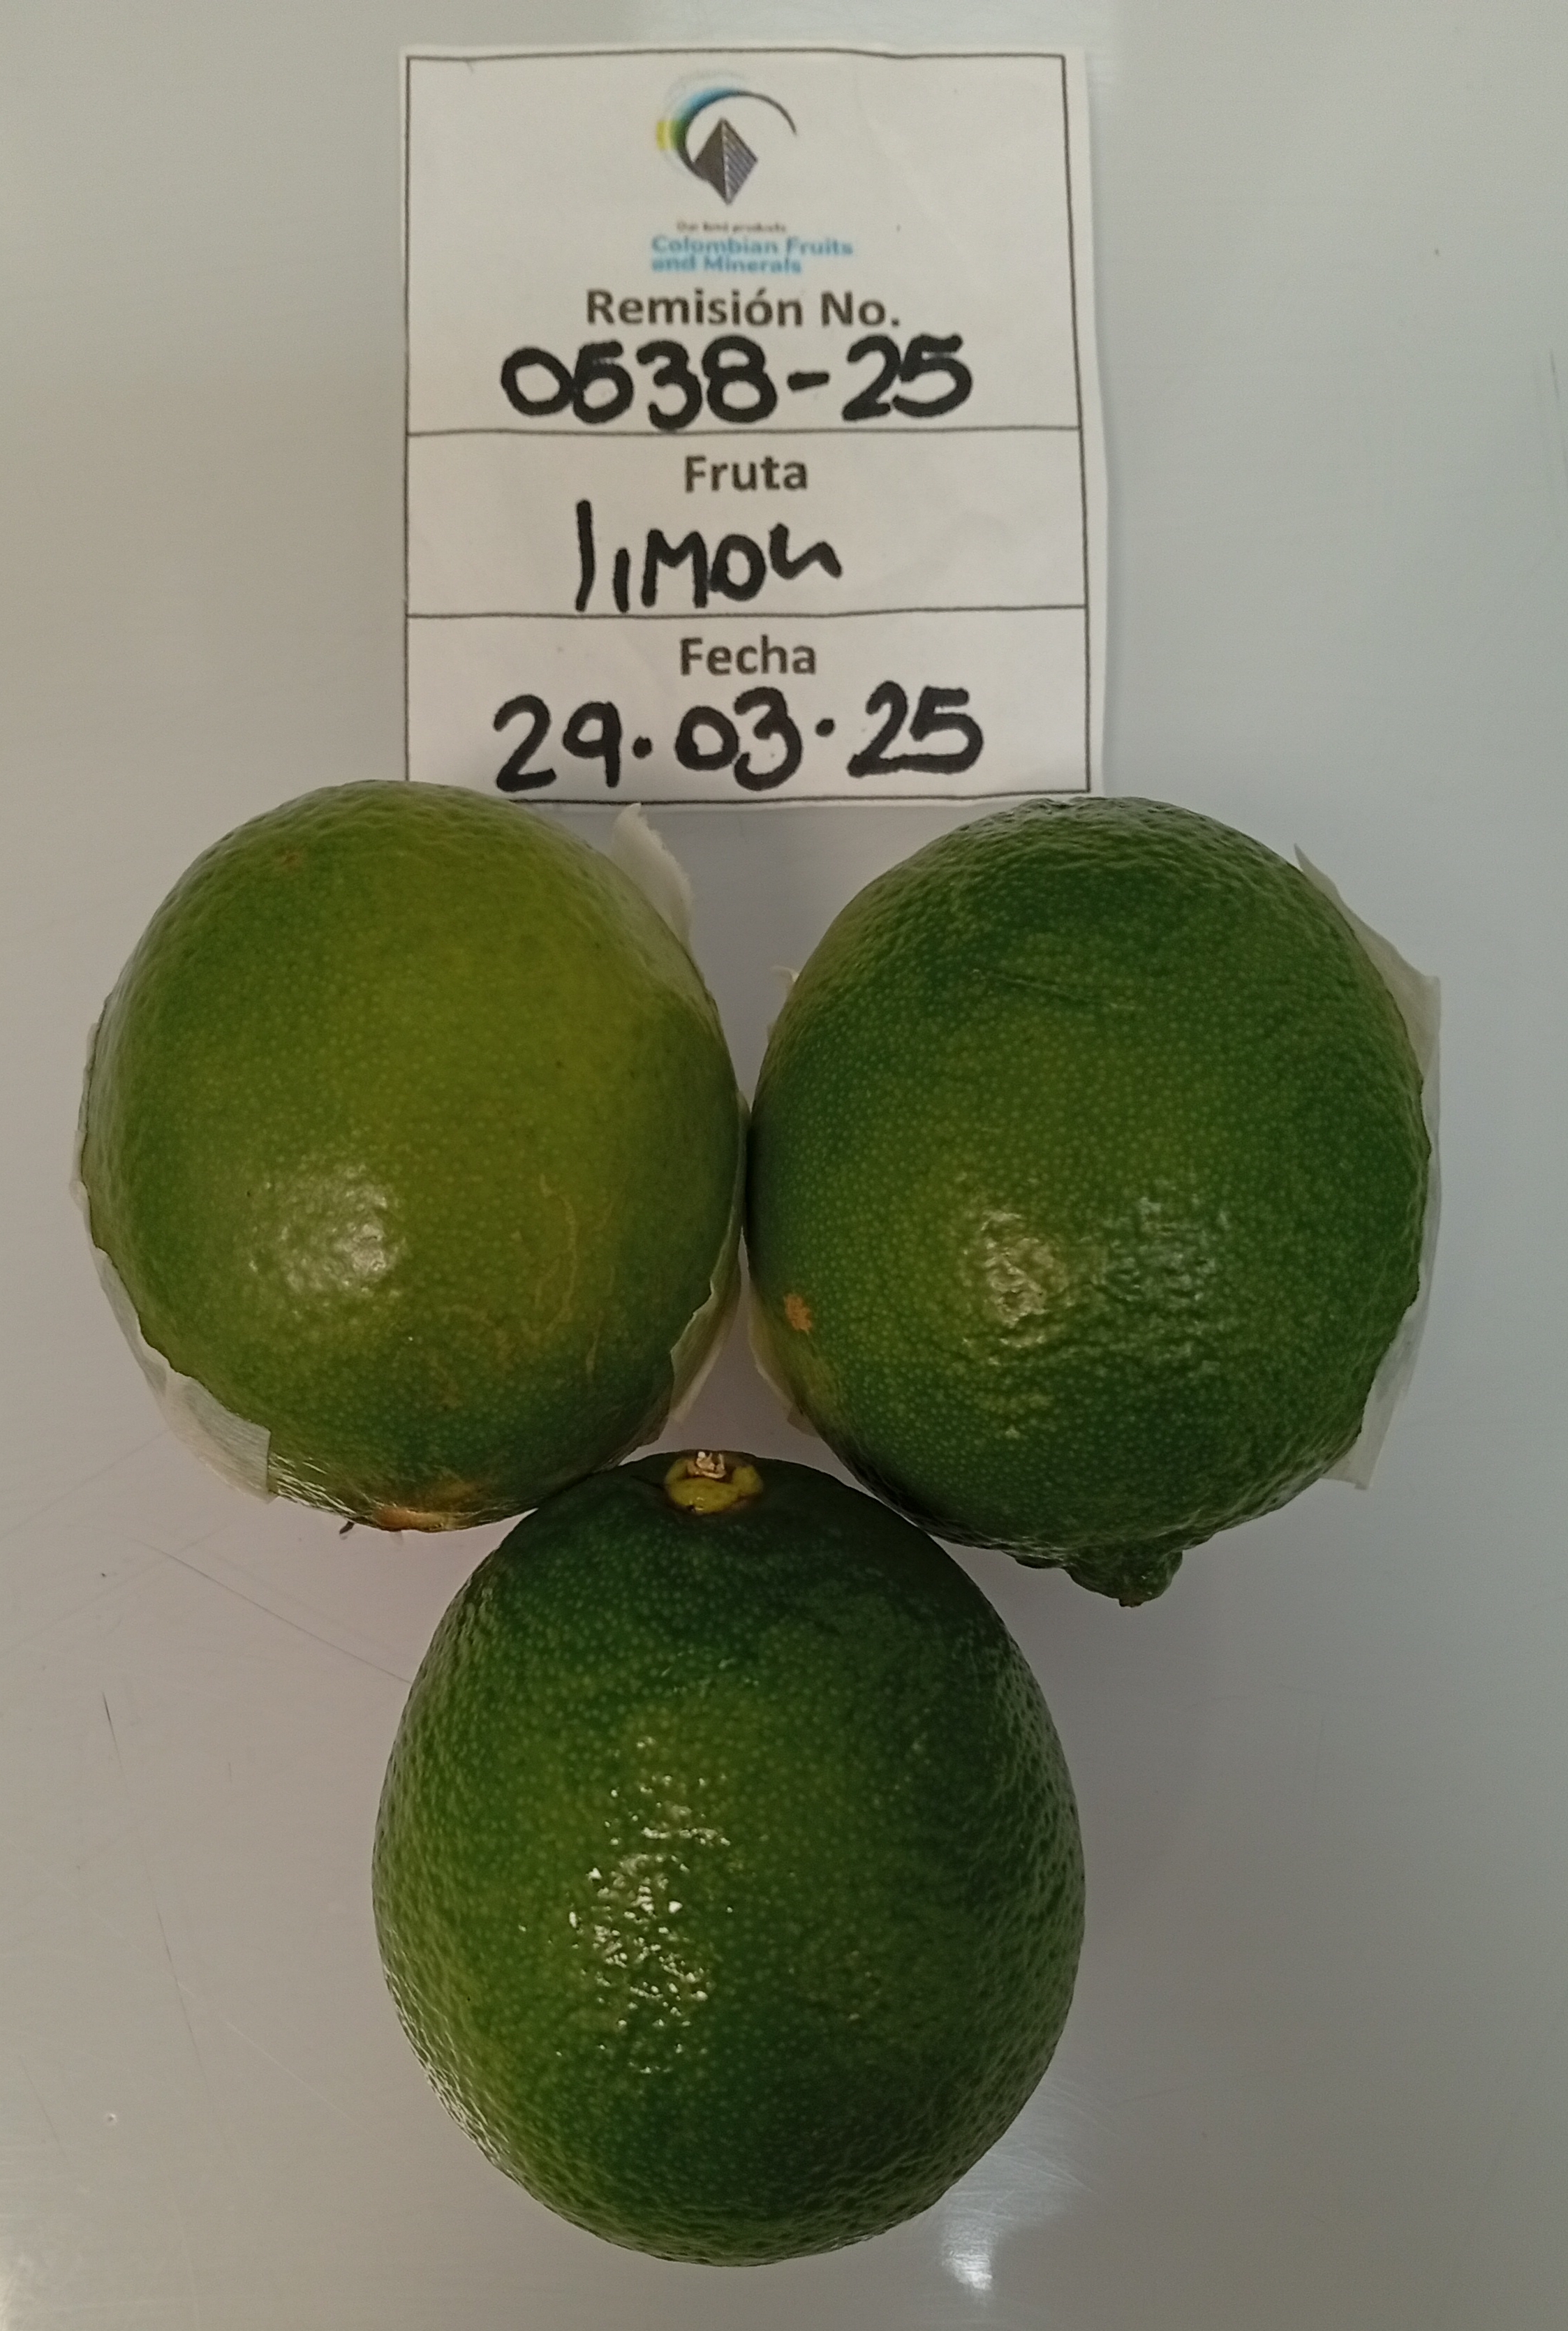 Our best products
Colombian Fruits
and Minerals
Remisión No.
0538-25
Fruta
limon
Fecha
29.03.25